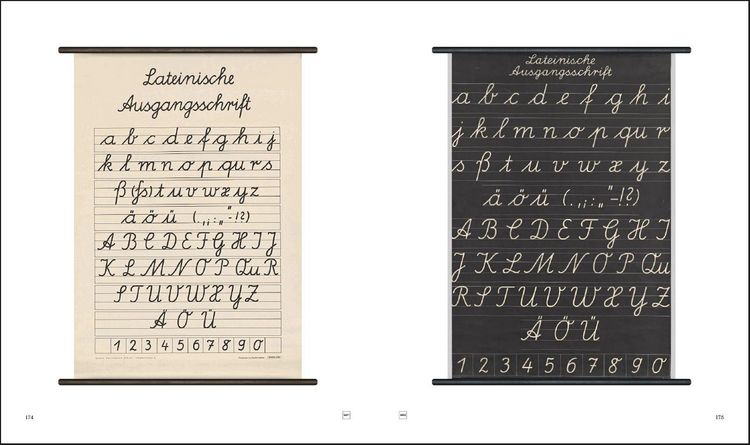 Lateinische
Ausgangsschrift
a b c d e f g h i j
k l m n o p qu r s
ß (ſs) t u v w x y z
ä ö ü ( . , ; : „ “ - ! ? )
A B C D E F G H I J
K L M N O P Qu R
S T U V W X Y Z
Ä Ö Ü
1 2 3 4 5 6 7 8 9 0
174
Lateinische
Ausgangsschrift
a b c d e f g h i
j k l m n o p qu r
s ß t u v w x y z
ä ö ü ( . , ; : „ “ - ! ? )
A B C D E F G H I J
K L M N O P Qu
R S T U V W X Y Z
Ä Ö Ü
1 2 3 4 5 6 7 8 9 0
175